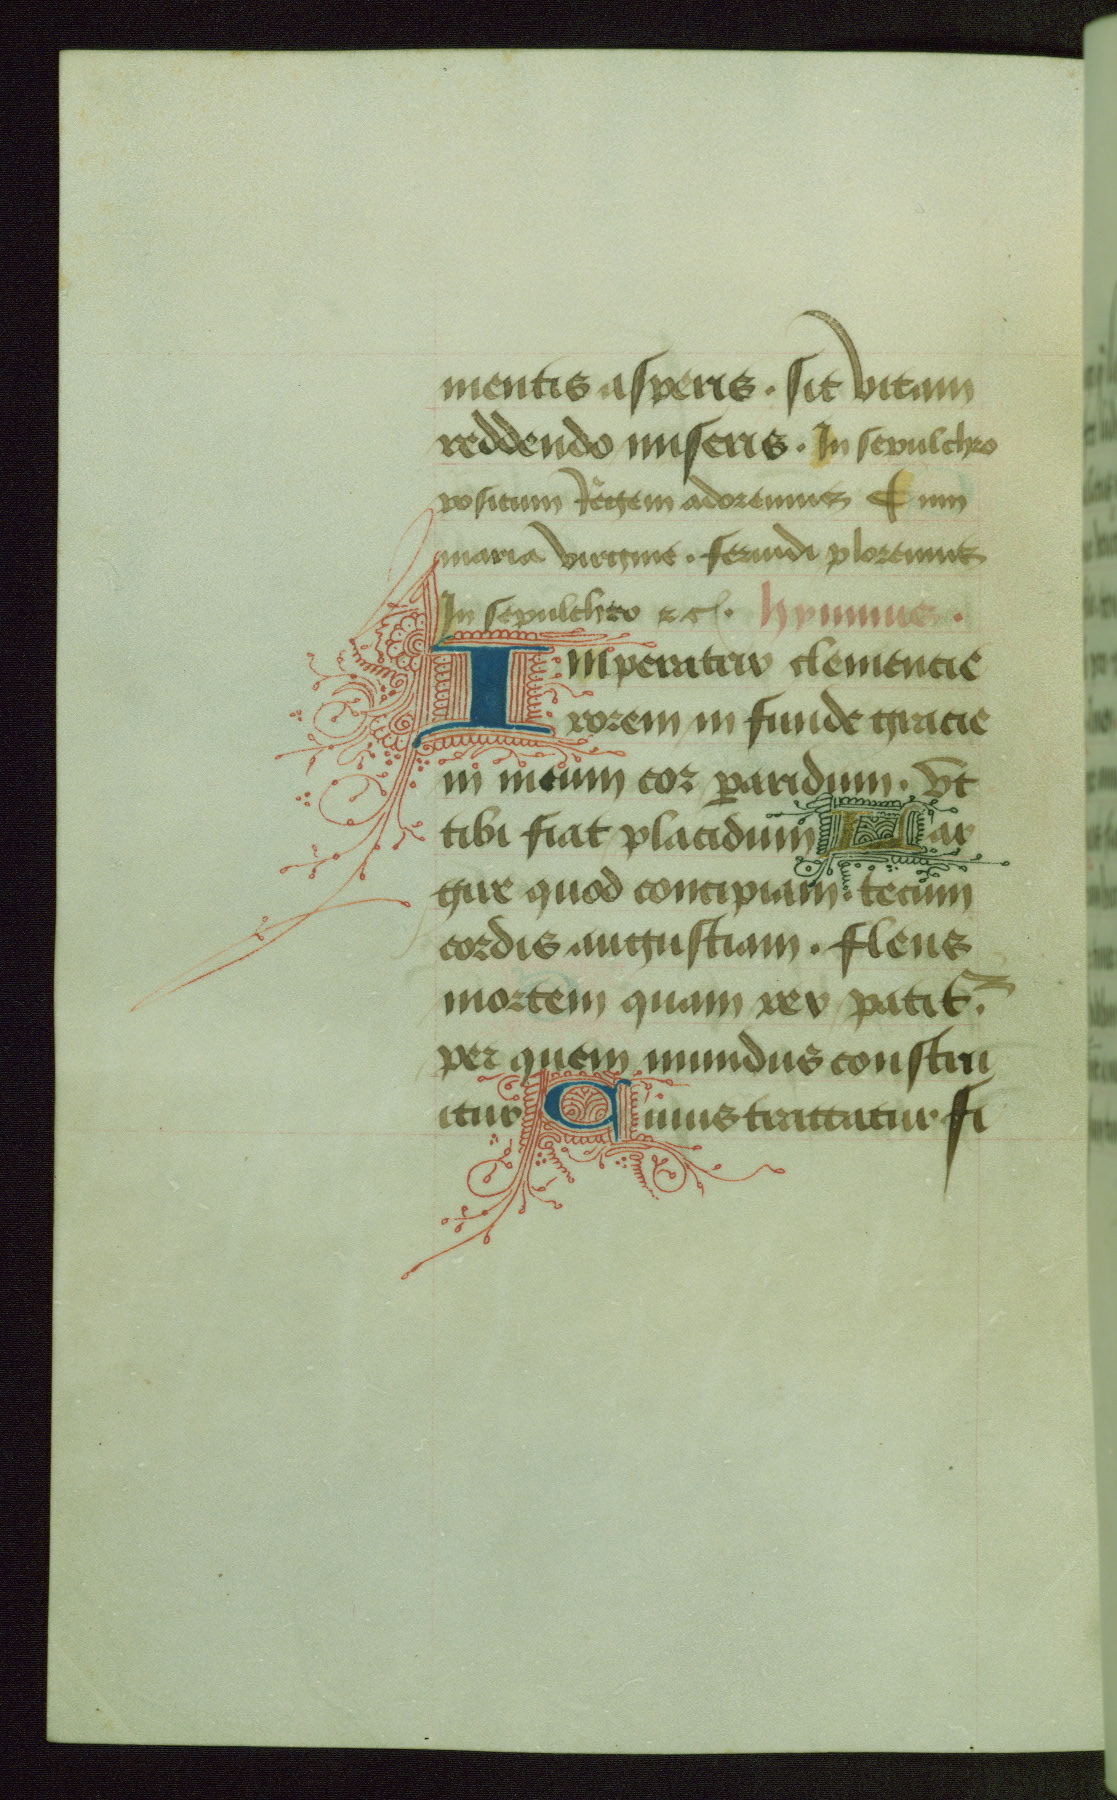 mentis asperis . sit vitam
reddendo miseris . In sepulchro
positum Regem adoremus Cum
maria virgine . ferundi ploremus
In sepulchro ⁊cͥ . hymnus .
Imperatrix clemencie
rorem in funde gracie
in meum cor paridum . Vt
tibi fiat placidum Lar
gire quod concipiam . tecum
cordis angustiam . flens
mortem quam rex patit᷑ .
per quem mundus constru
itur Quius trattatur fi